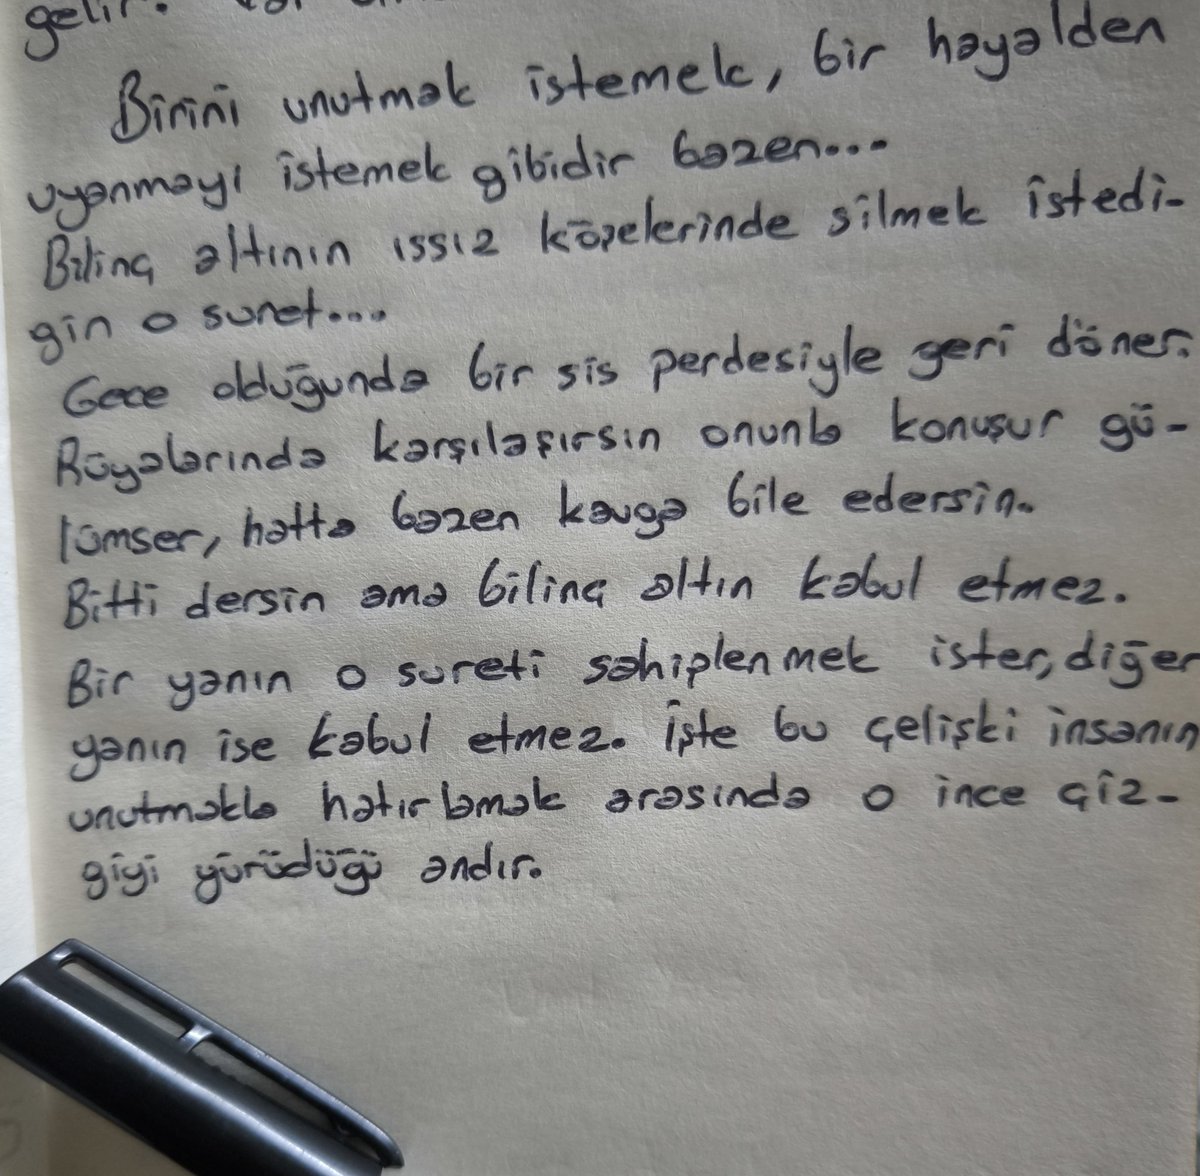 gelir.
Birini unutmak istemek, bir hayalden
uyanmayı istemek gibidir bazen...
Bilinç altının ıssız köşelerinde silmek istedi-
gin o suret....
Gece olduğunda bir sis perdesiyle geri döner.
Rüyalarında karşılaşırsın onunla konuşur gü-
lümser, hatta bazen kavga bile edersin.
Bitti dersin ama bilinç altın kabul etmez.
Bir yanın o sureti sahiplenmek ister, diğer
yanın ise kabul etmez. İşte bu çelişki insanın
unutmakla hatırlamak arasında o ince çiz-
giyi yürüdüğü andır.